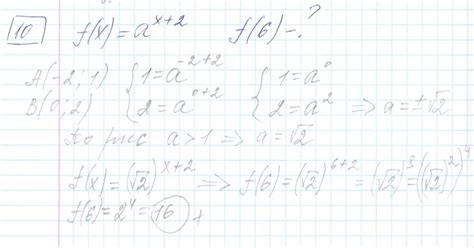 10 f(x) = a^{x+2} f(6) - ?
A(-2; 1) { 1 = a^{-2+2} { 1 = a^0
B(0; 2) { 2 = a^{0+2} { 2 = a^2 => a = ±√2
по рис a > 1 => a = √2
f(x) = (√2)^{x+2} => f(6) = (√2)^{6+2} = (√2)^8 = ((√2)^2)^4
f(6) = 2^4 = 16 +